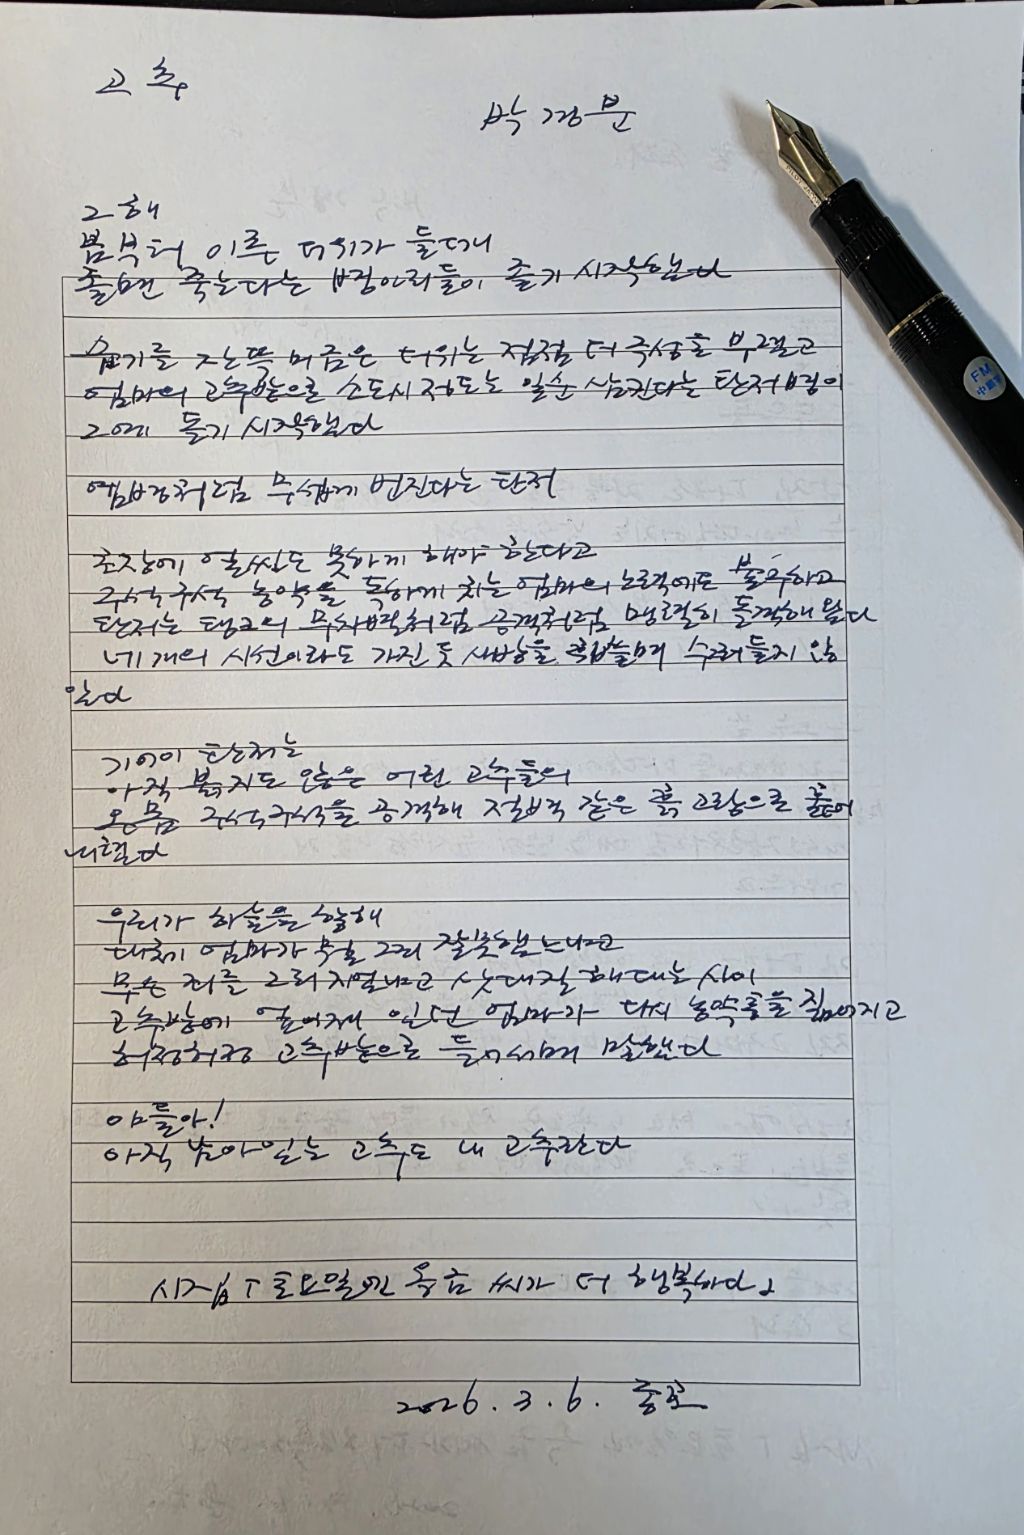 고추
박경분
그해
봄부터 이른 더위가 들더니
졸면 죽는다는 병아리들이 졸기 시작했다
습기를 잔뜩 머금은 더위는 점점 더 극성을 부렸고
엄마의 고추밭으로 소도시 정도는 일순 삼킨다는 탄저병이
그예 돌기 시작했다
염병처럼 무섭게 번진다는 탄저
초장에 얼씬도 못하게 해야 한다고
구석구석 농약을 독하게 치는 엄마의 노력에도 불구하고
탄저는 탱크의 무차별처럼 공격처럼 맹렬히 돌격해 왔다
네 개의 시선이라도 가진 듯 사방을 훑으며 수그러들지 않
았다
기어이 탄저는
아직 붉지도 않은 어린 고추들의
온몸 구석구석을 공격해 절벽 같은 흙 고랑으로 쏟아
내렸다
우리가 하늘을 향해
대체 엄마가 무얼 그리 잘못했느냐고
무슨 죄를 그리 지었냐고 삿대질 해대는 사이
고추밭에 엎어져 있던 엄마가 다시 농약통을 짊어지고
허정허정 고추밭으로 들어서며 말했다
야들아!
아직 남아있는 고추도 내 고추란다
시집 「토요일엔 옥금 씨가 더 행복하다」
2026. 3. 6.
FM